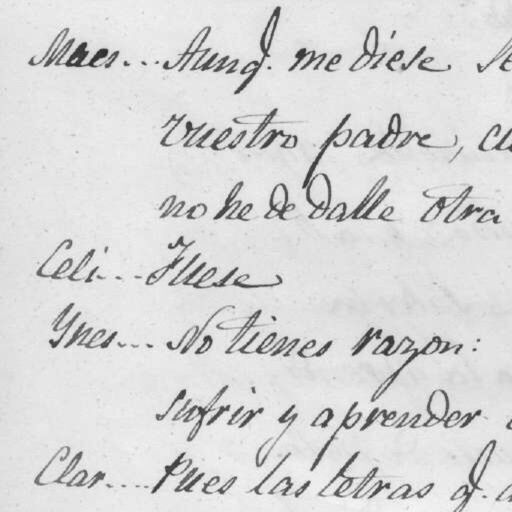 Maes... Aunq. me diese Se
vuestro padre, cu
no he de dalle otra
Celi... Fuese
Ynes... No tienes razon:
sufrir y aprender
Clar.... Pues las letras q. a